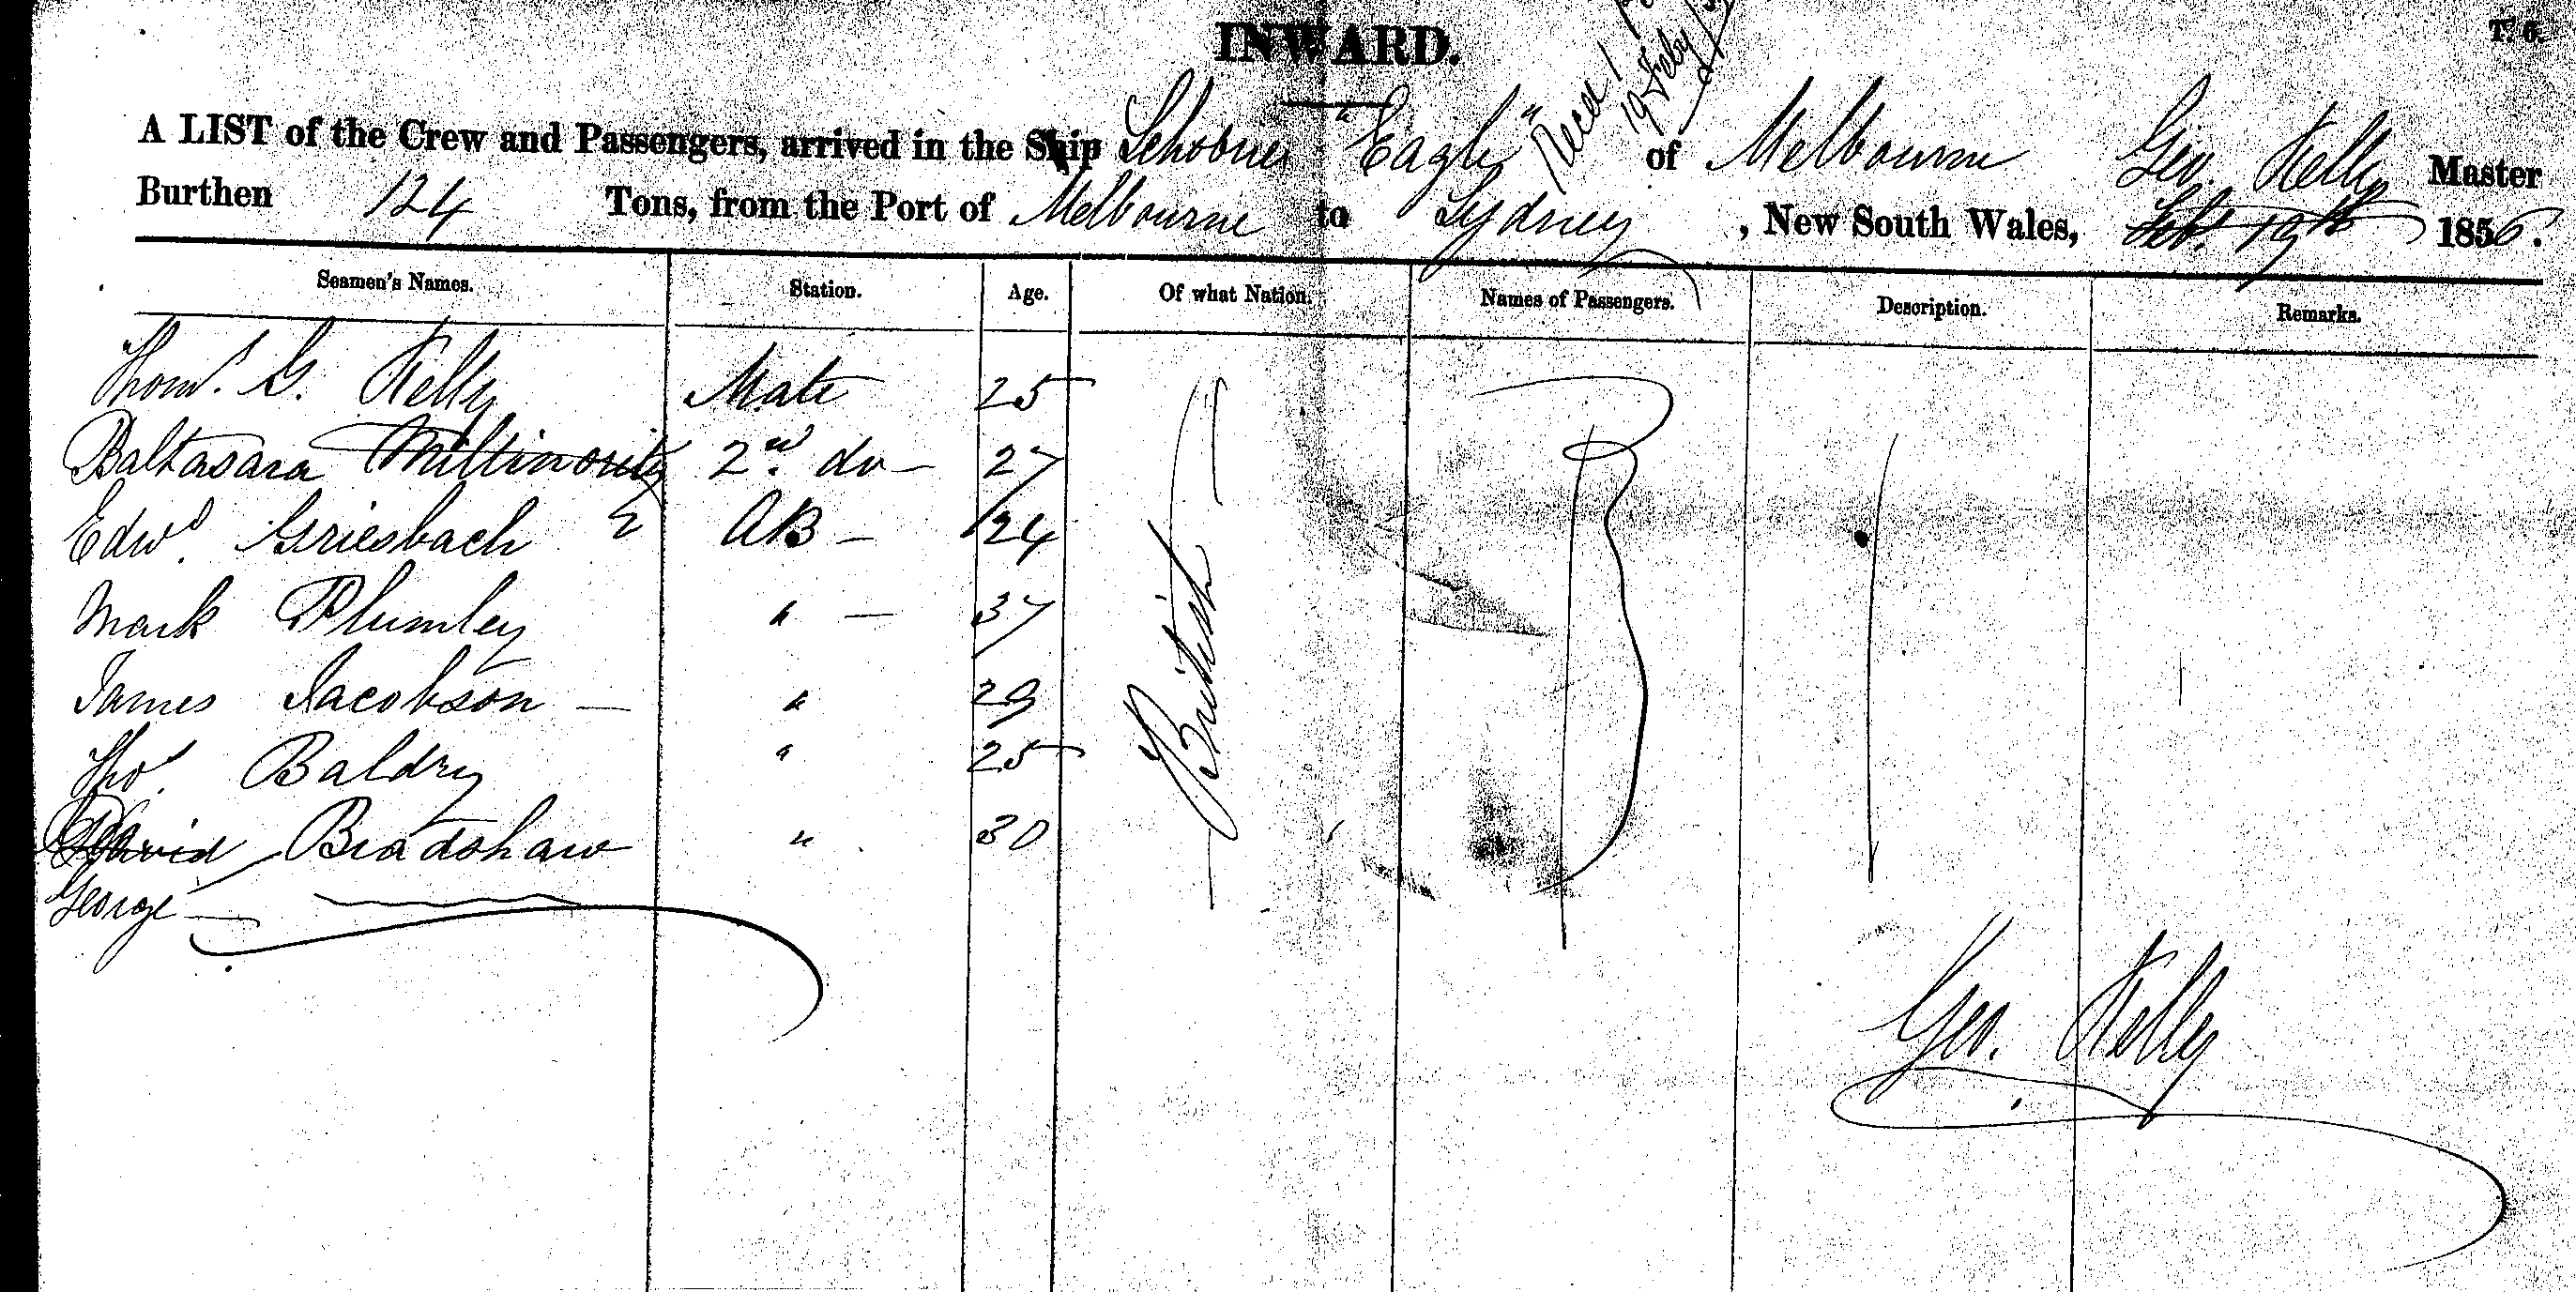 INWARD.
T. 6.
Recd
19 Feby
A LIST of the Crew and Passengers, arrived in the Ship Schooner "Eagle" of Melbourne Geo. Kelly Master
Burthen 124 Tons, from the Port of Melbourne to Sydney, New South Wales, Feb. 19th 1856.
Seamen's Names. Station. Age. Of what Nation. Names of Passengers. Description. Remarks.
Thoms. G. Kelly Mate 25
Baltasara 2nd do — 27
Edwd. Griesbach AB — 24
Mark Plumley " — 37
James Jacobson — " 29
Thos. Baldry " 25
David Bradshaw " 30
George
British
Geo. Kelly